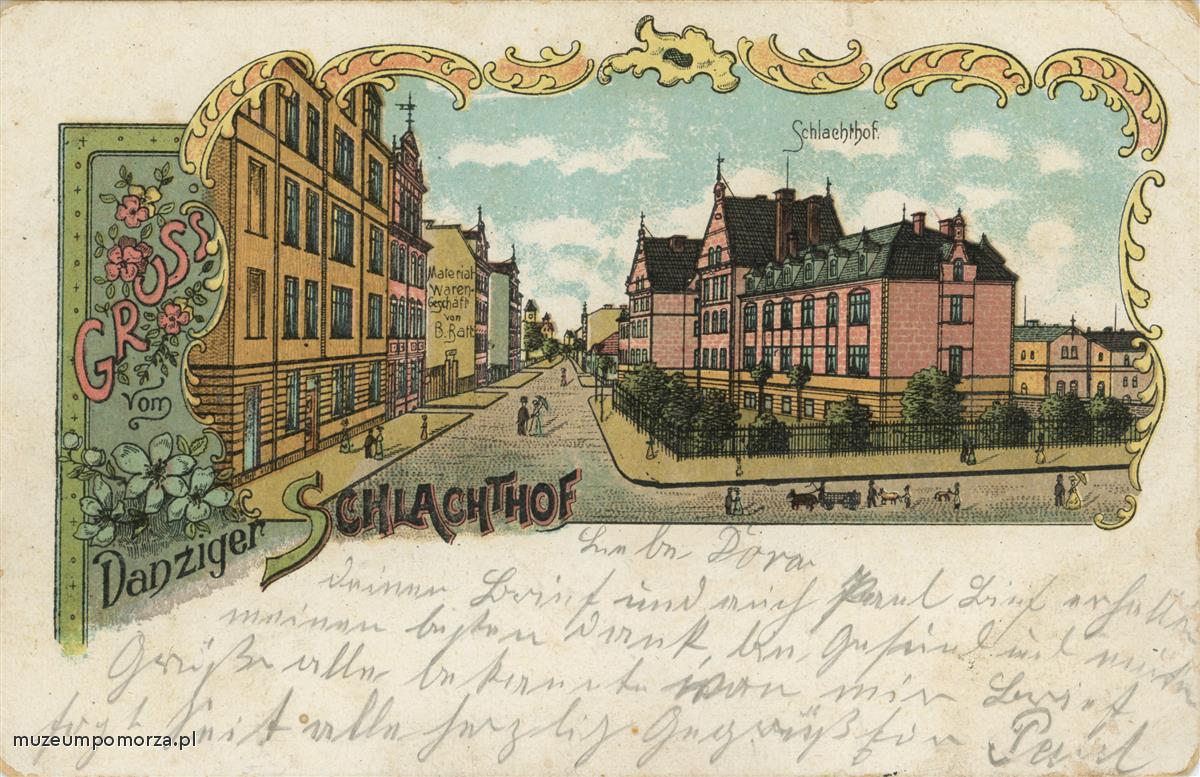 GRUSS
vom
Danziger SCHLACHTHOF
Schlachthof.
Material-
Waren-
Geschäft
von
B. Ratt
Liebe Dora
deinen Brief und auch Paul Brief erhalten
meinen besten Dank, bin Gesund und munter
Grüße alle bekannte von mir Brief
folgt seit alle herzlig Gegrüßt von Paul
muzeumpomorza.pl